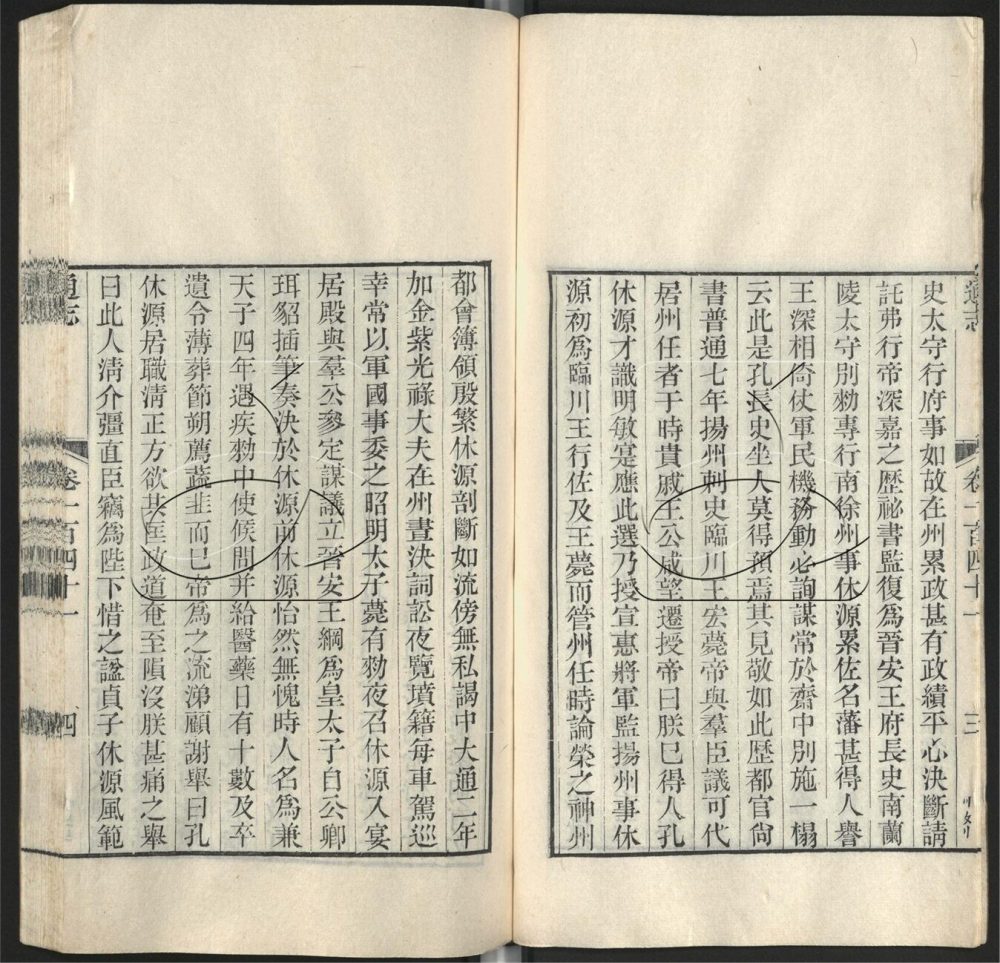 通志
卷一百四十一
三
史太守行府事如故在州累政甚有政績平心決斷請
託弗行帝深嘉之歷祕書監復爲晉安王府長史南蘭
陵太守別勑專行南徐州事休源累佐名藩甚得人譽
王深相倚仗軍民機務動必詢謀常於齋中別施一榻
云此是孔長史坐人莫得預焉其見敬如此歷都官尙
書普通七年揚州刺史臨川王宏薨帝與羣臣議可代
居州任者于時貴戚王公咸望遷授帝曰朕已得人孔
休源才識明敏寔應此選乃授宣惠將軍監揚州事休
源初爲臨川王行佐及王薨而管州任時論榮之神州
都會簿領殷繁休源剖斷如流傍無私謁中大通二年
加金紫光祿大夫在州晝決詞訟夜覽墳籍每車駕巡
幸常以軍國事委之昭明太子薨有勑夜召休源入宴
居殿與羣公參定謀議立晉安王綱爲皇太子自公卿
珥貂插筆奏決於休源前休源怡然無愧時人名爲兼
天子四年遇疾勑中使候問并給醫藥日有十數及卒
遺令薄葬節朔薦蔬韭而已帝爲之流涕顧謝舉曰孔
休源居職淸正方欲共匡政道奄至隕沒朕甚痛之舉
曰此人淸介彊直臣竊爲陛下惜之諡貞子休源風範
通志
卷一百四十一
四